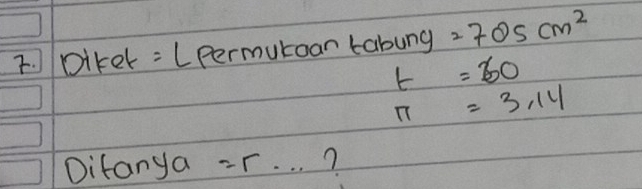 7. Diket = L Permukaan tabung = 705 cm²
t = 60
π = 3,14
Ditanya = r ... ?